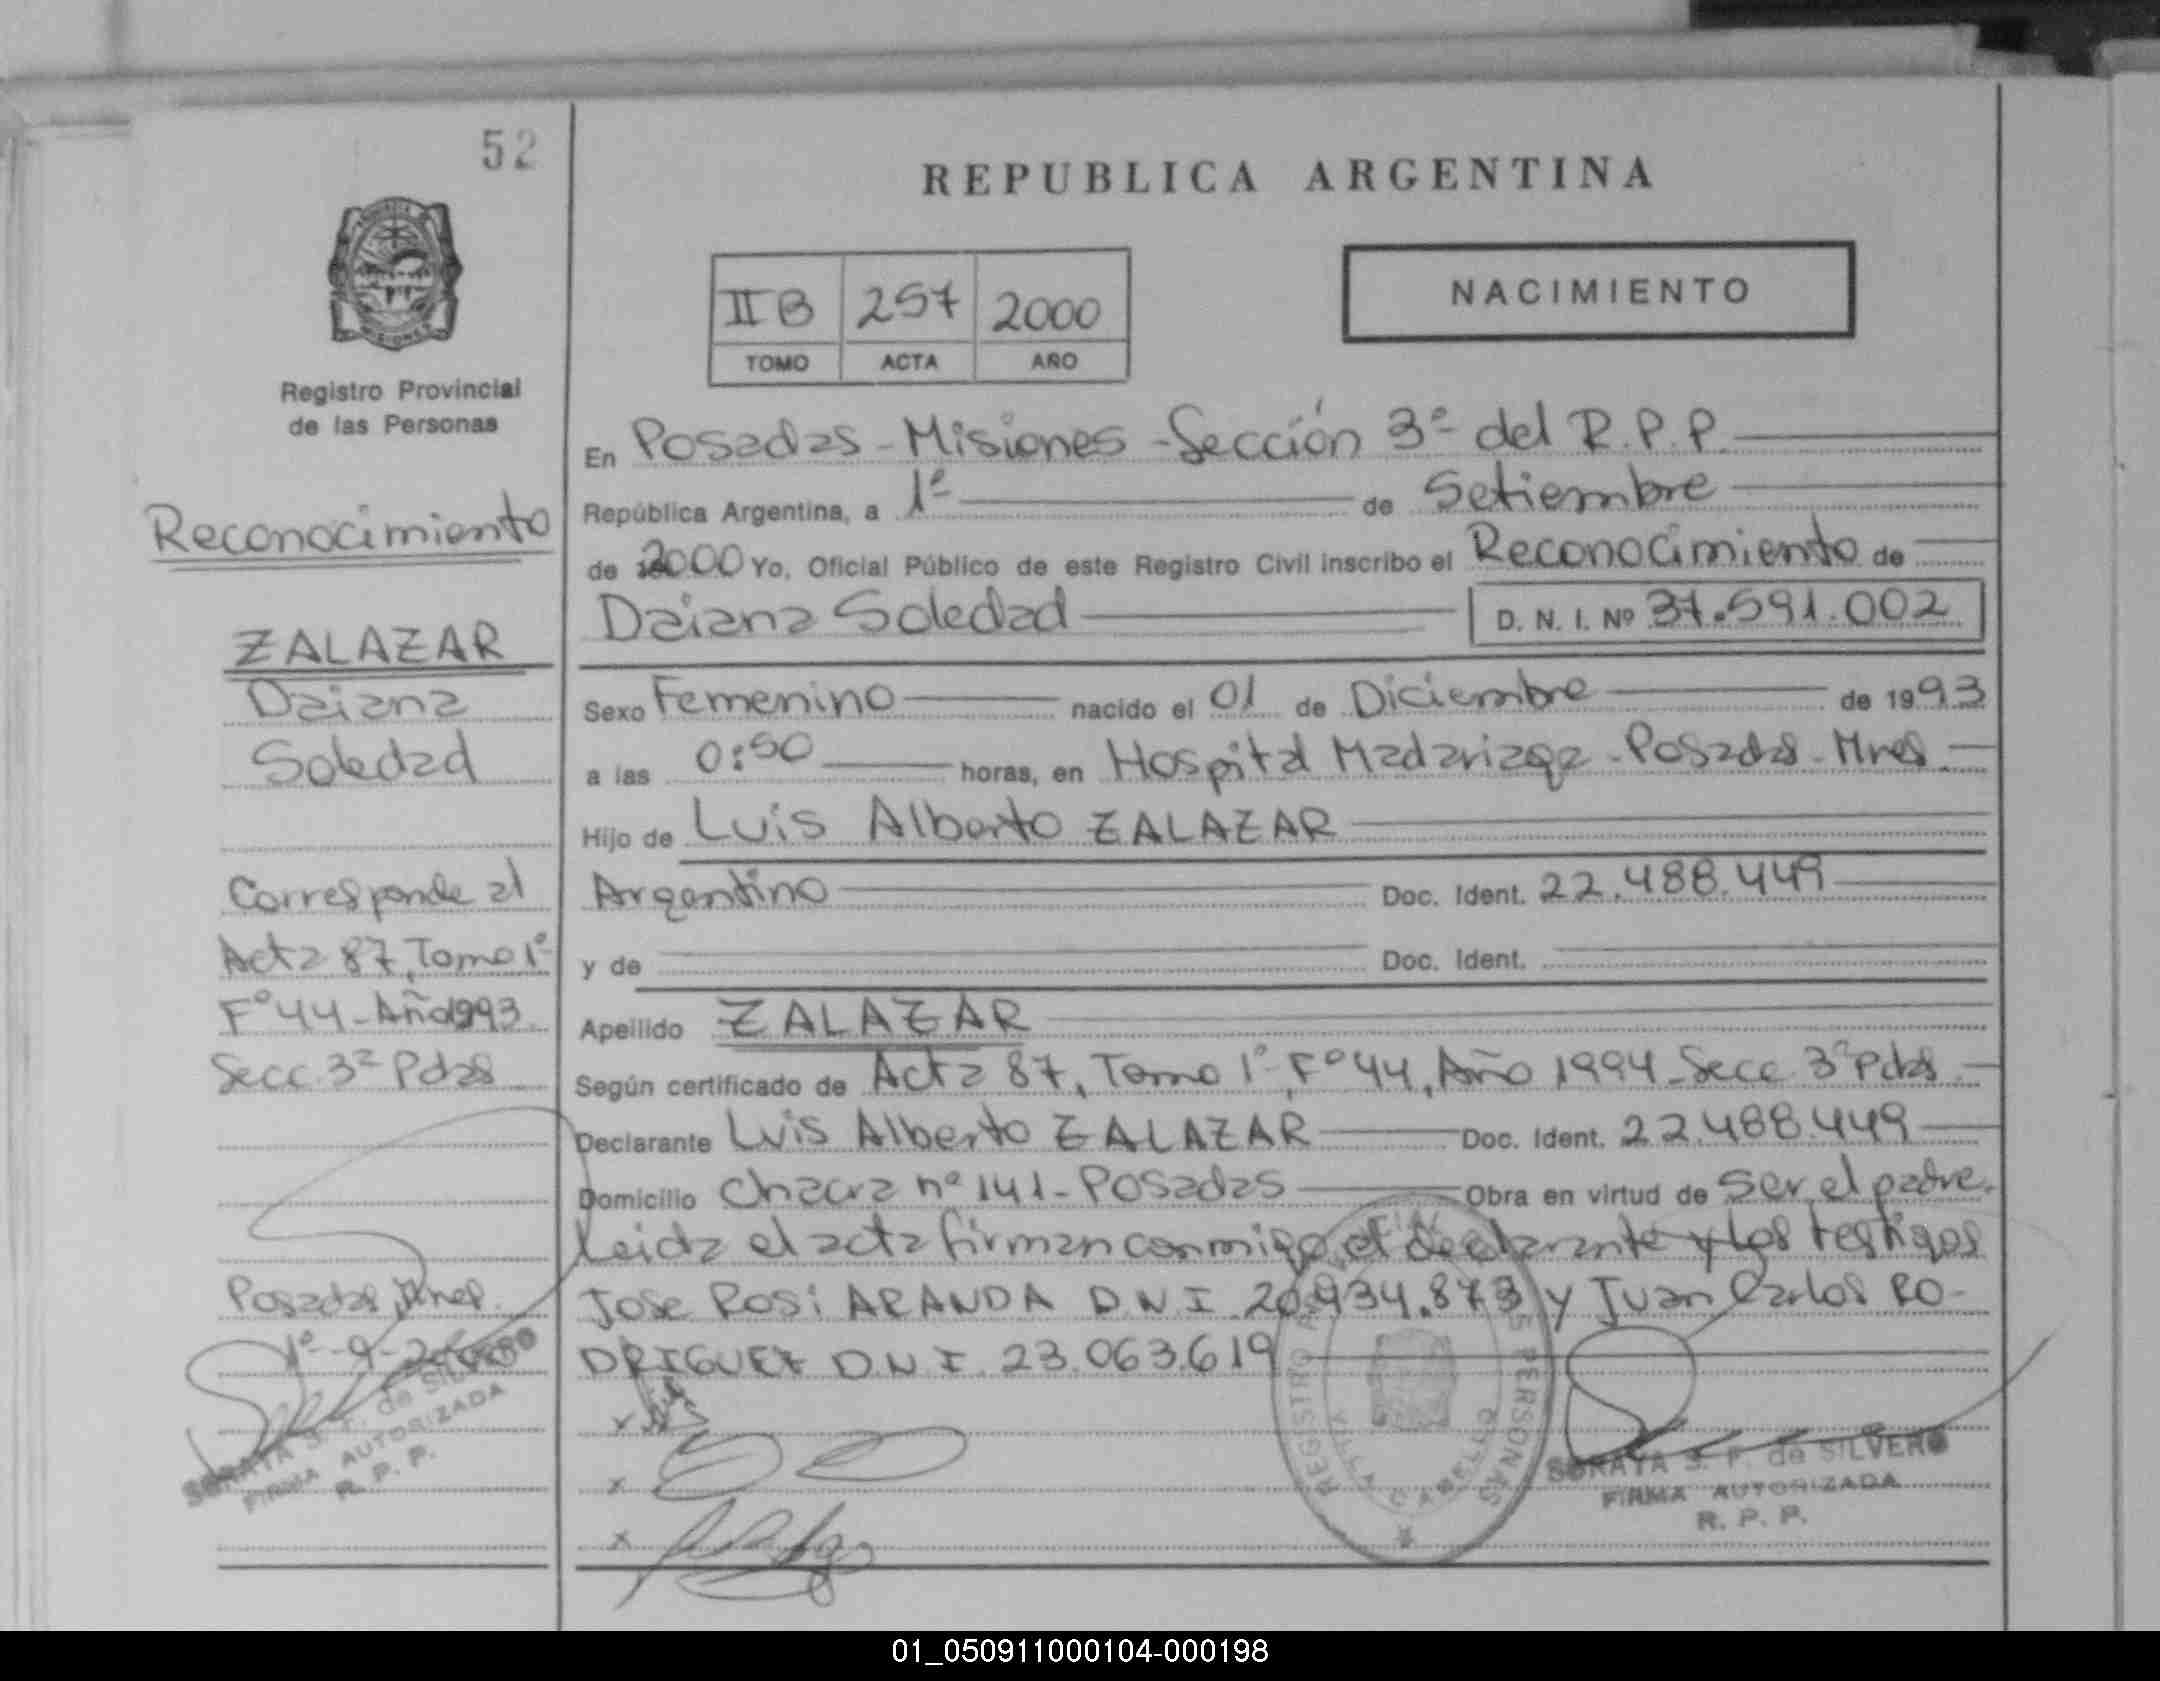 52
REPUBLICA ARGENTINA
NACIMIENTO
II B 257 2000
TOMO ACTA AÑO
Registro Provincial
de las Personas
Reconocimiento
ZALAZAR
Daiana
Soledad
Corresponde al
Acta 87, Tomo 1º
Fº 44 - Año 1993
Secc. 3ª Pdas
Posadas, Mnes.
1º-9-
SORAYA S. F. de SILVERO
FIRMA AUTORIZADA
R. P. P.
En Posadas - Misiones - Sección 3ª del R.P.P.
República Argentina, a 1º de Setiembre
de 2000 Yo, Oficial Público de este Registro Civil inscribo el Reconocimiento de
Daiana Soledad D. N. I. Nº 37.591.002
Sexo Femenino nacido el 01 de Diciembre de 1993
a las 0:50 horas, en Hospital Madariaga - Posadas - Mnes.
Hijo de Luis Alberto ZALAZAR
Argentino Doc. Ident. 22.488.449
y de Doc. Ident.
Apellido ZALAZAR
Según certificado de Acta 87, Tomo 1º, Fº 44, Año 1994 - Secc. 3ª Pdas.
Declarante Luis Alberto ZALAZAR Doc. Ident. 22.488.449
Domicilio Chacra nº 141 - Posadas Obra en virtud de ser el padre.
Leida el acta firman conmigo el declarante y los testigos
Jose Rosi ARANDA D.N.I. 20.934.873 y Juan Carlos RO-
DRIGUEZ D.N.I. 23.063.619
x
x
x
REGISTRO PERSONAS
VILLA CABELLO
SORAYA S. F. de SILVERO
FIRMA AUTORIZADA
R. P. P.
01_050911000104-000198